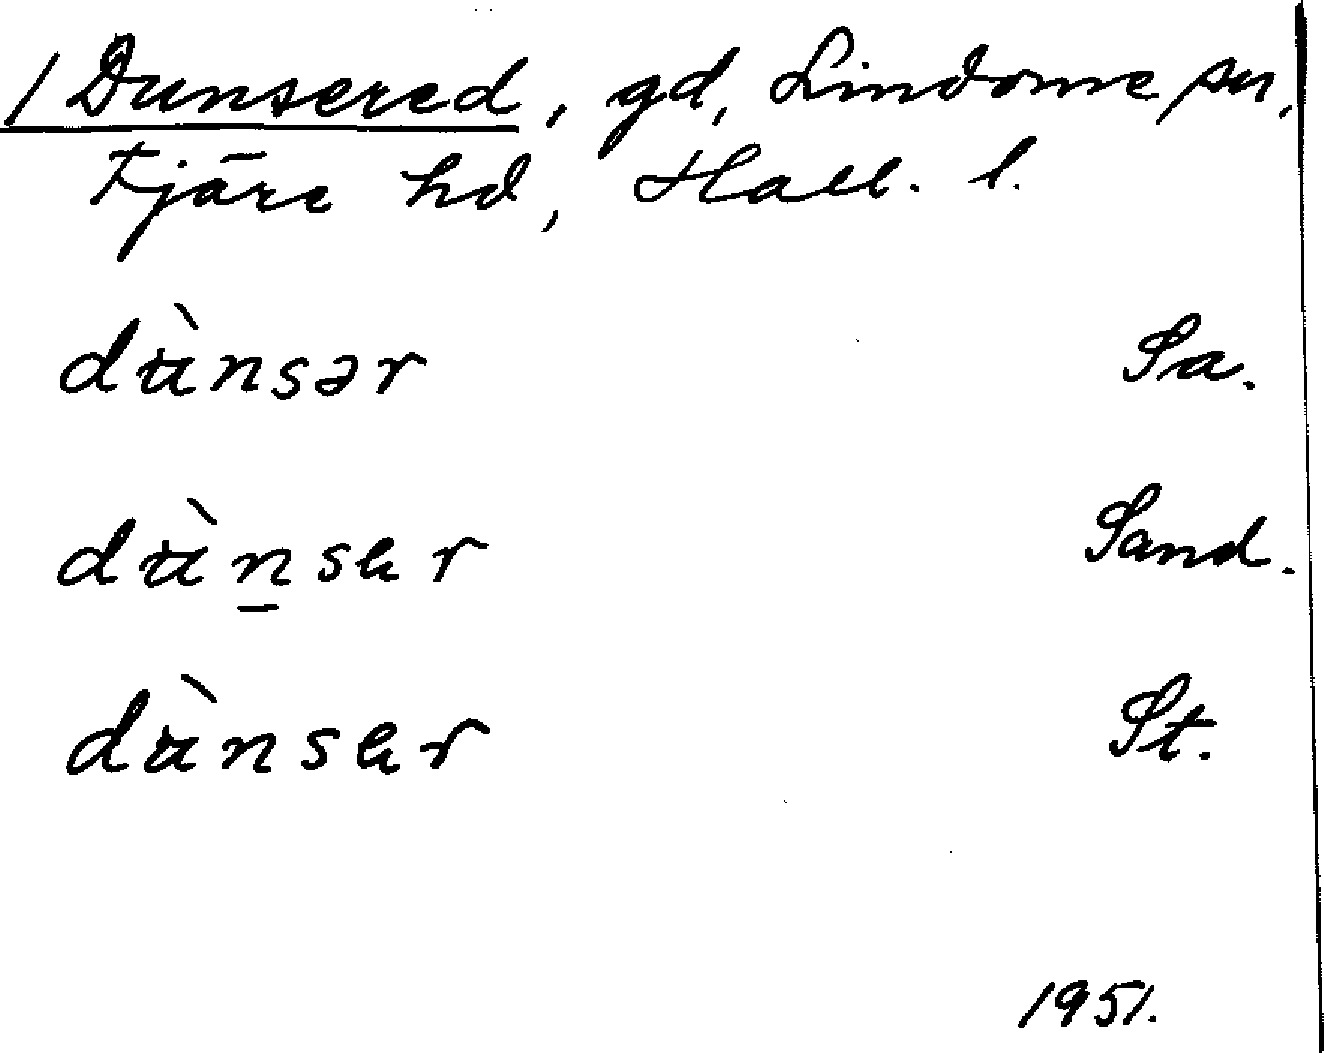 / Dunsered, gd, Lindome sn,
Fjäre hd, Hall. l.
dùnsər Sa.
dùn̲sər Sand.
dùnsər St.
1951.